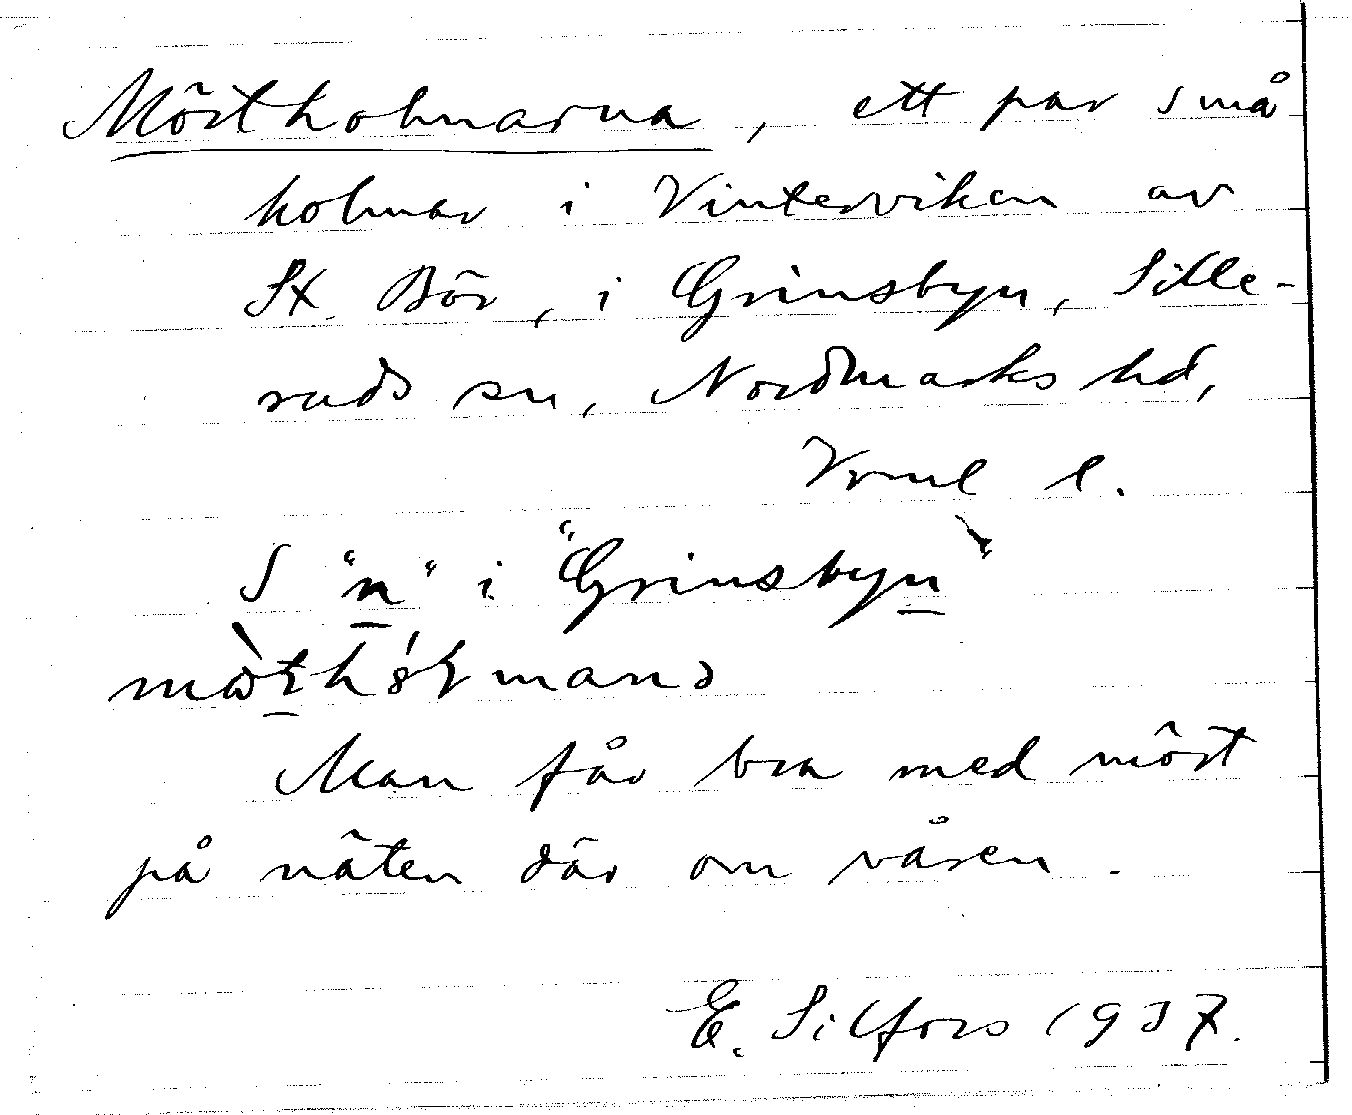 Mörtholmarna, ett par små
holmar i Vinterviken av
St. Bör, i Grinsbyn, Sille-
ruds sn, Nordmarks hd,
Vrml l.
S "n" i "Grinsbyn"
Man får bra med mört
på näten där om våren.
E. Silfors 1937.